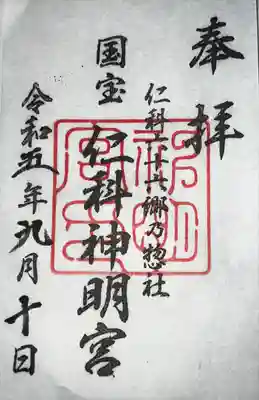 奉拝
仁科六十六郷乃惣社
国宝 仁科神明宮
令和五年九月十日